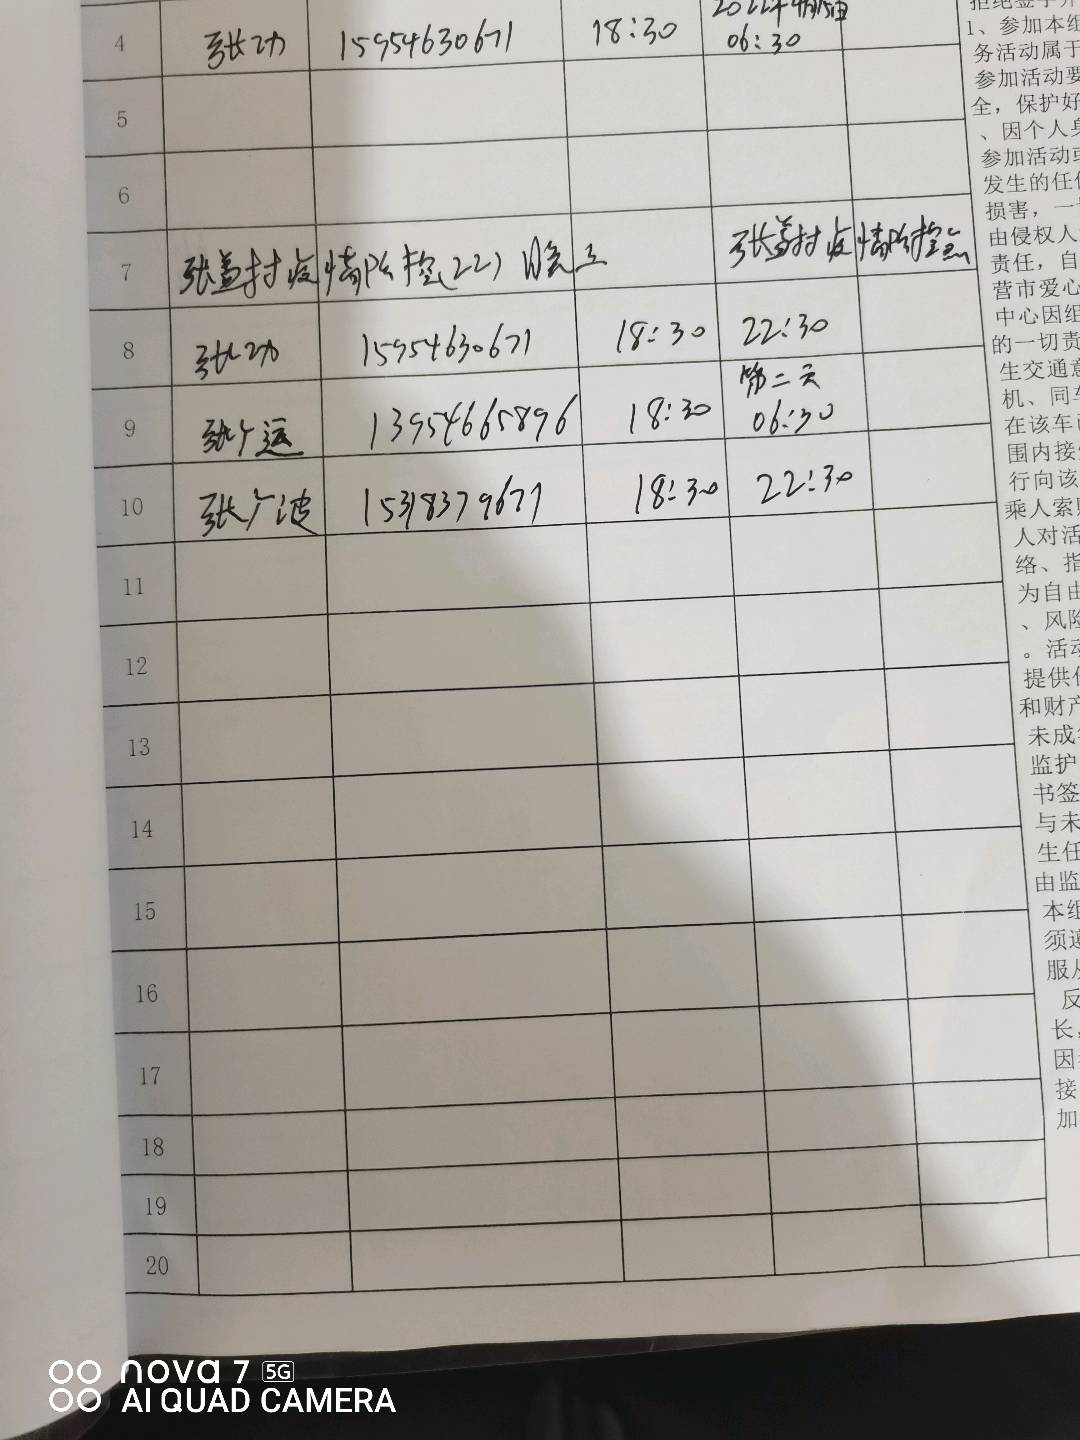 4 张功 15954630671 18:30 06:30
5
6
7 张盖村疫情防控(22) 张盖村疫情防控点
8 张功 15954630671 18:30 22:30
第二天
9 张广运 13954665896 18:30 06:30
10 张广波 15318379671 18:30 22:30
11
12
13
14
15
16
17
18
19
20
1、参加本组
务活动属于
参加活动要
全，保护好
、因个人身
参加活动或
发生的任何
损害，一
由侵权人
责任，自
营市爱心
中心因组
的一切责
生交通意
机、同车
在该车
围内接
行向该
乘人索
人对活
络、指
为自由
、风险
。活动
提供
和财产
未成年
监护
书签
与未
生任
由监
本组
须遵
服从
反
长，
因
接
加
nova 7 5G
AI QUAD CAMERA